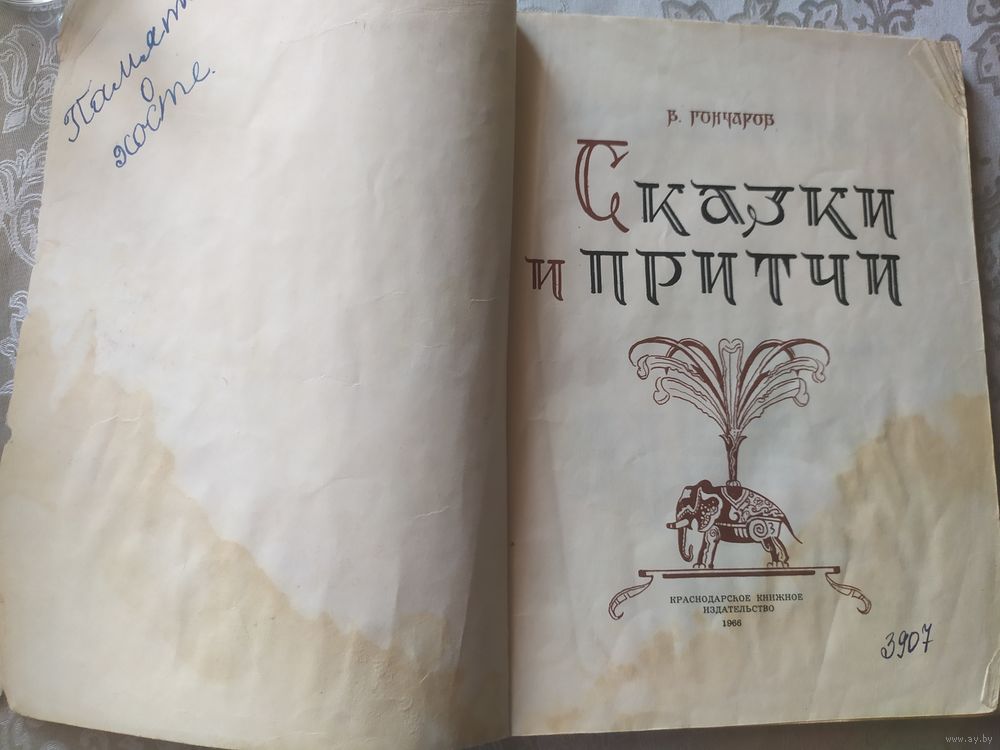 Память
о
Хосте.
В. ГОНЧАРОВ
Сказки
и притчи
КРАСНОДАРСКОЕ КНИЖНОЕ
ИЗДАТЕЛЬСТВО
1966
3907
www.ay.by